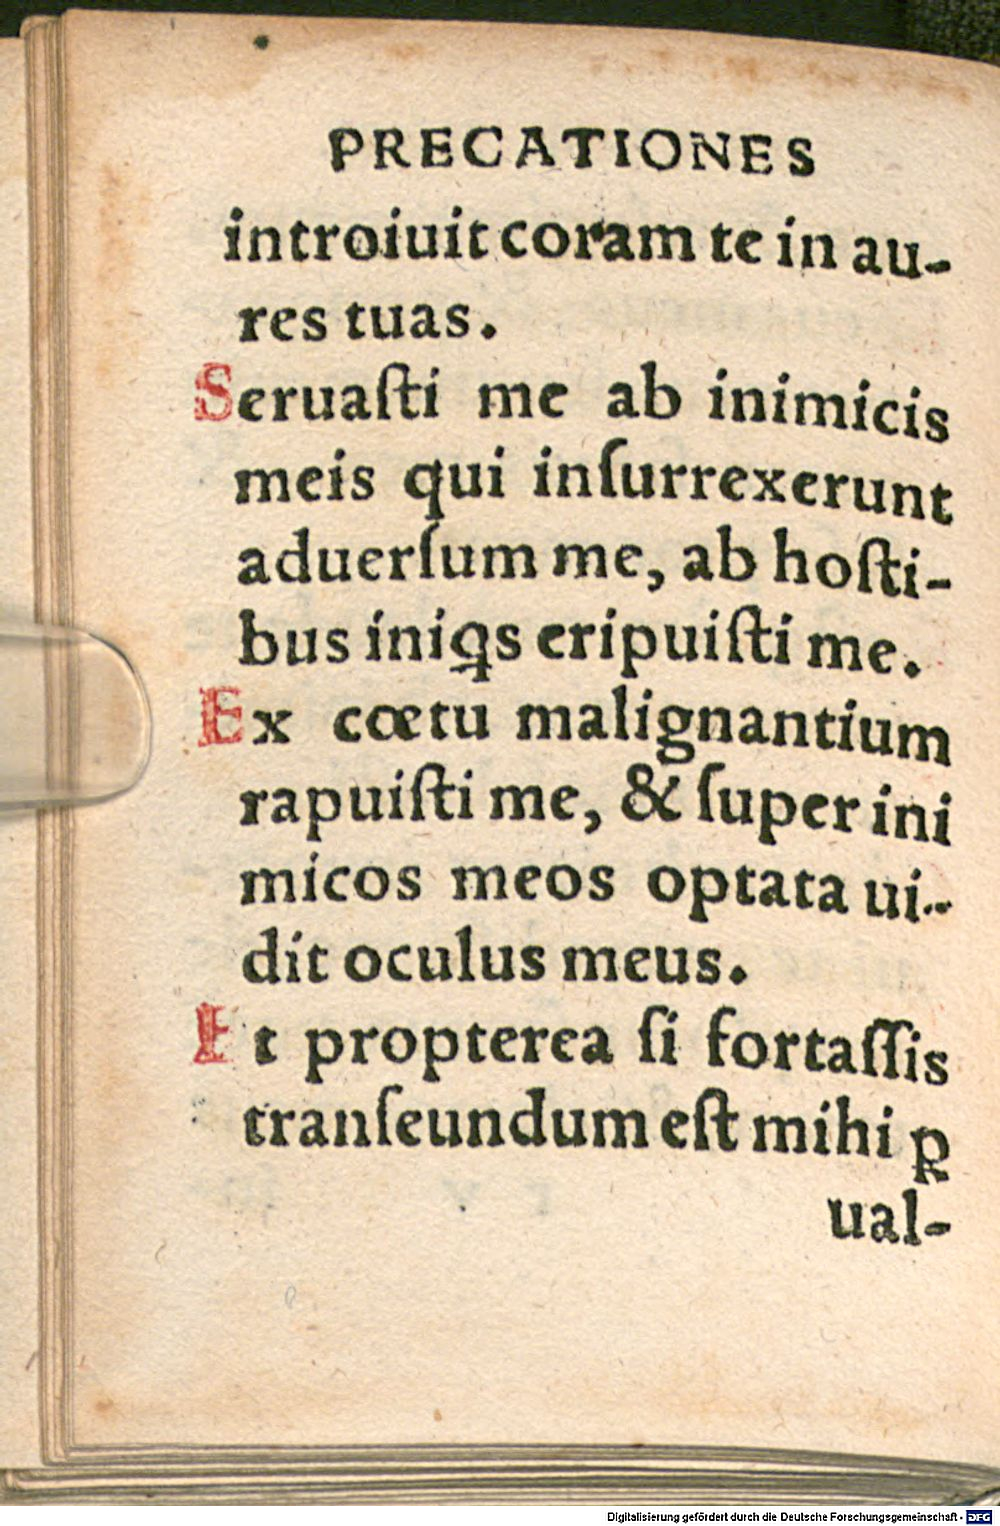 PRECATIONES
introiuit coram te in au-
res tuas.
Seruaſti me ab inimicis
meis qui inſurrexerunt
aduerſum me, ab hoſti-
bus iniqꝫs eripuiſti me.
Ex cœtu malignantium
rapuiſti me, & ſuper ini
micos meos optata ui-
dit oculus meus.
Et propterea ſi fortaſſis
tranſeundum eſt mihi ꝑ
ual-
Digitalisierung gefördert durch die Deutsche Forschungsgemeinschaft - DFG